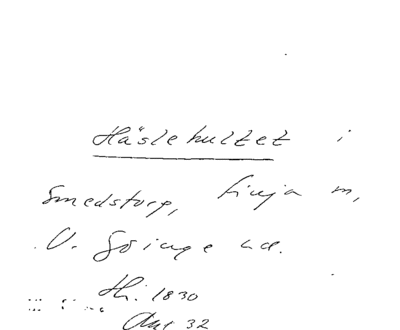 Häslehultet i
Smedstorp, Finja sn,
V. Göinge hd.
Hi. 1830
32